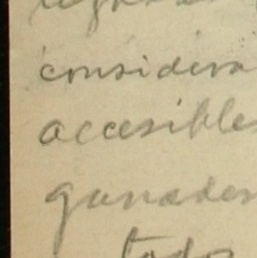 considera
accesibles
ganader
todo